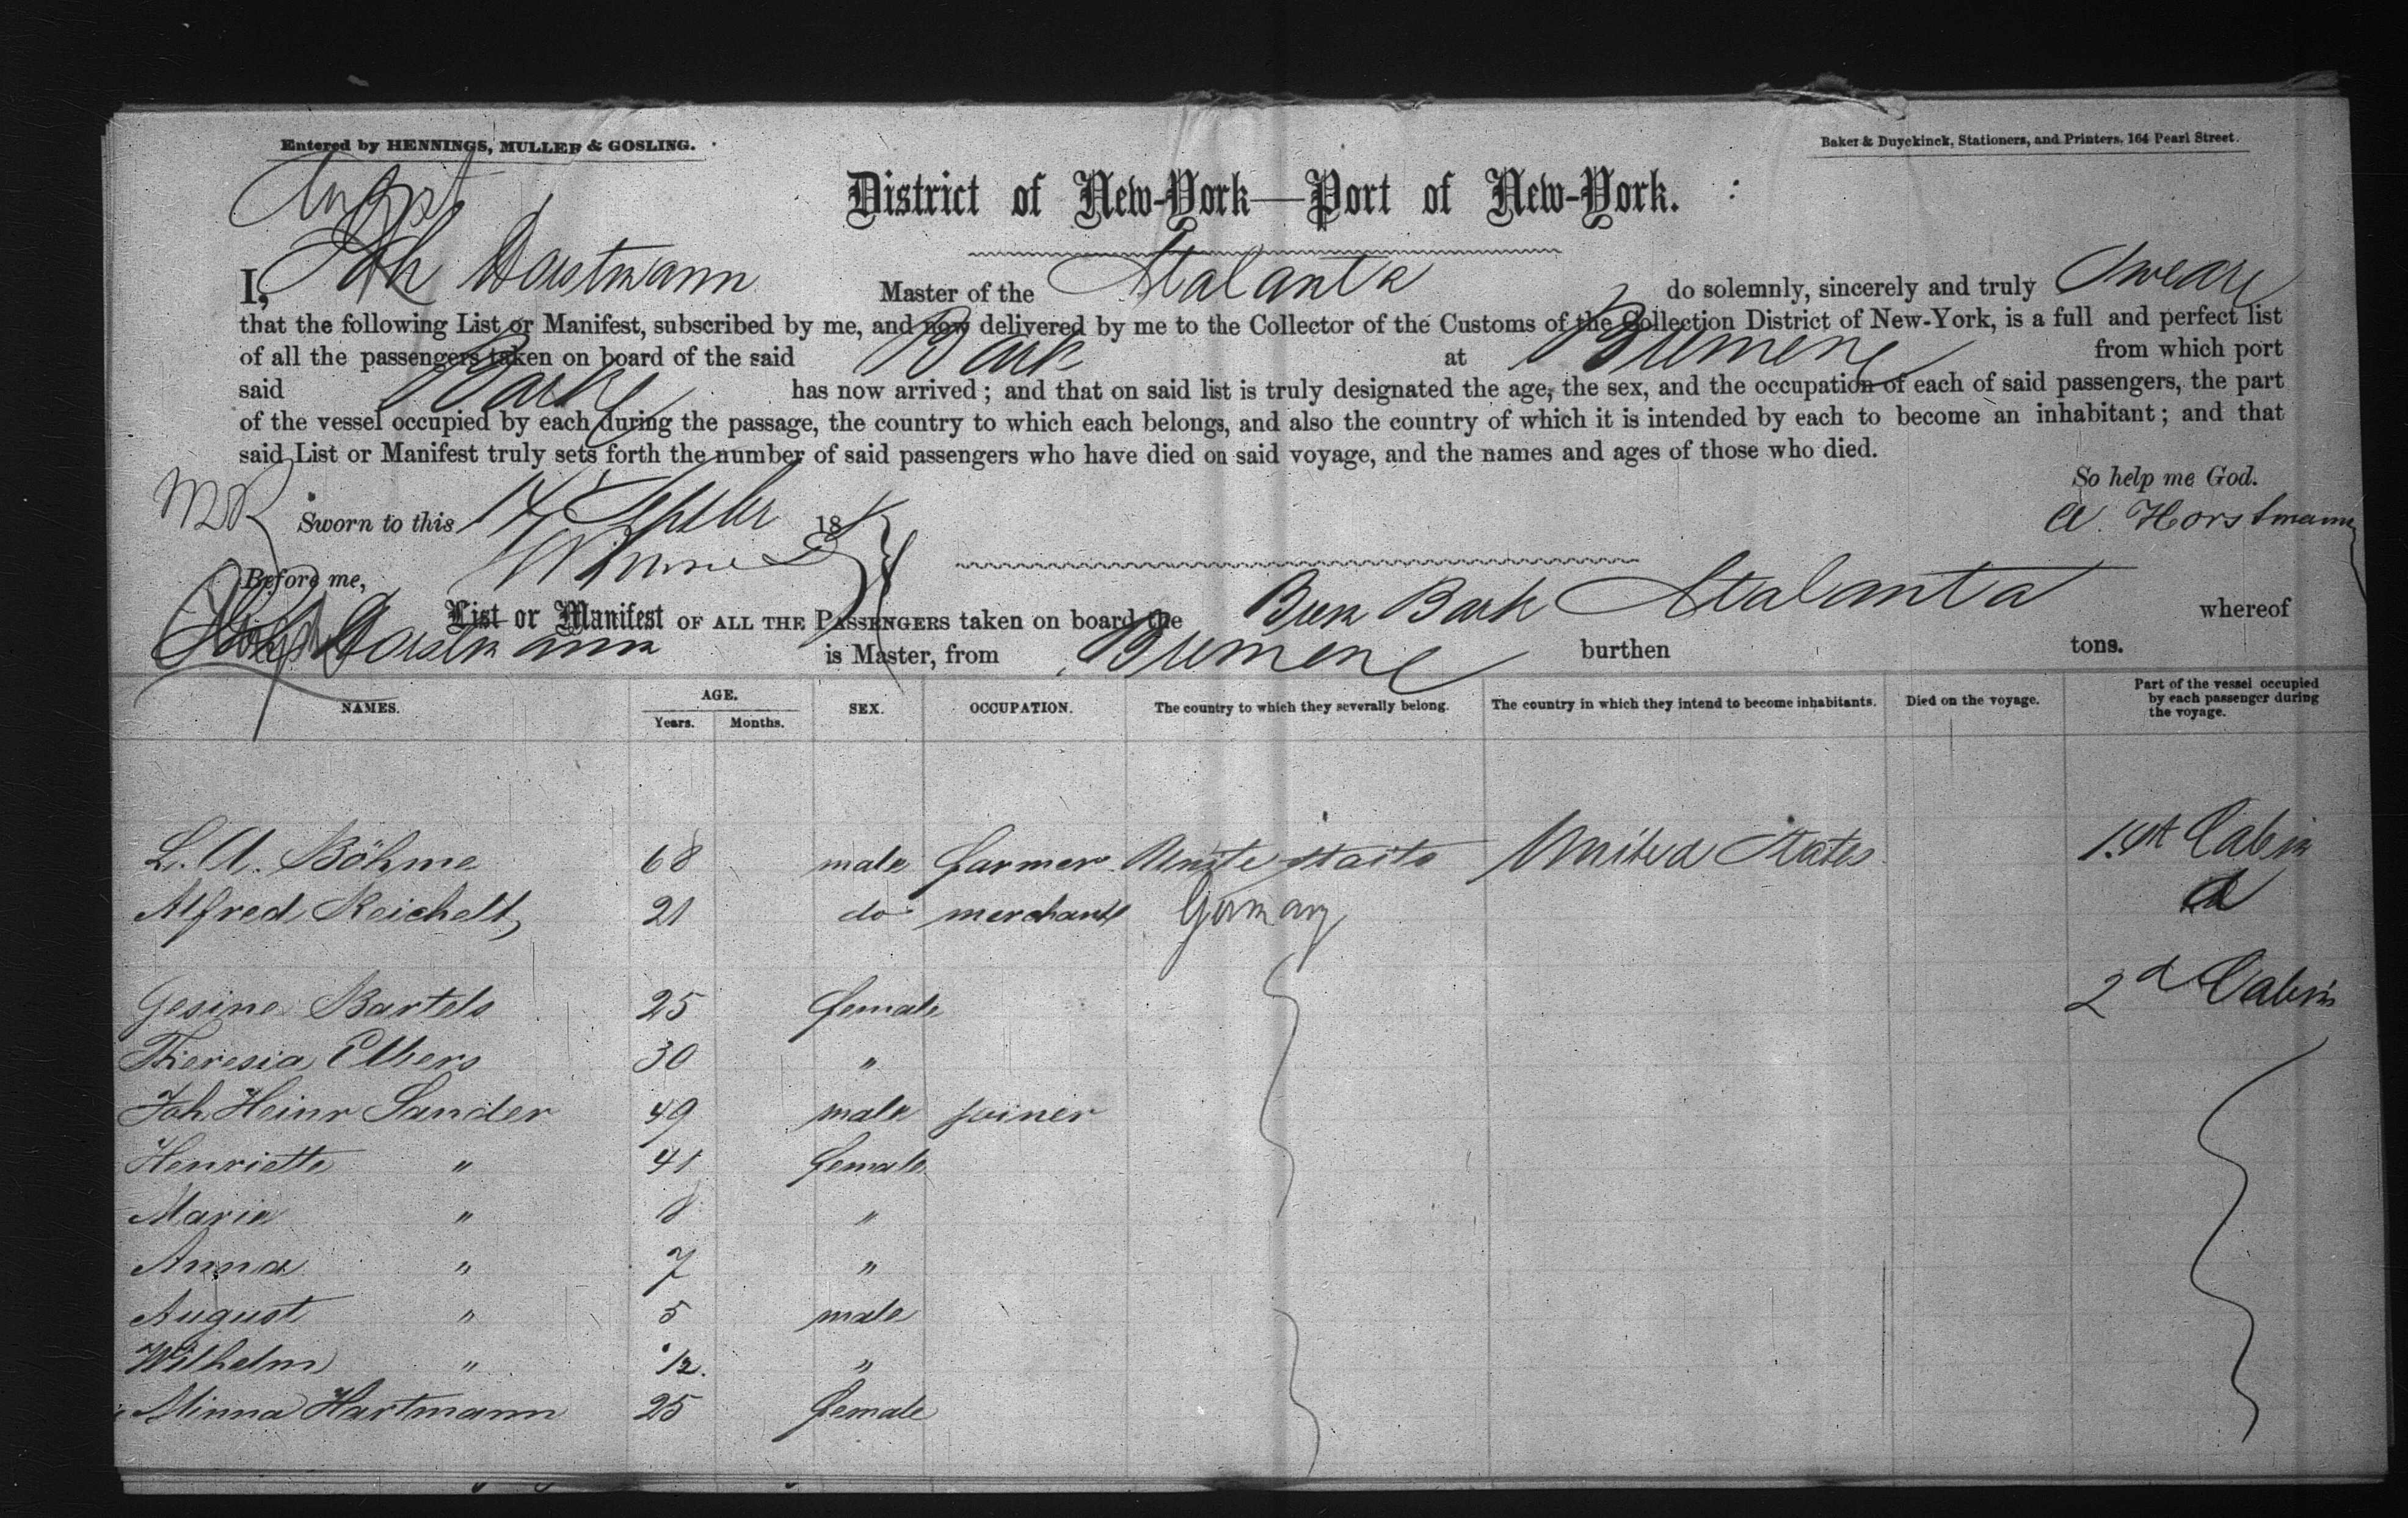 Entered by HENNINGS, MULLER & GOSLING.
Baker & Duyckinck, Stationers, and Printers, 164 Pearl Street.
District of New-York—Port of New-York.
August
I, Joh Horstmann Master of the Atalanta do solemnly, sincerely and truly Swear
that the following List or Manifest, subscribed by me, and now delivered by me to the Collector of the Customs of the Collection District of New-York, is a full and perfect list
of all the passengers taken on board of the said Bark at Bremen from which port
said Bark has now arrived; and that on said list is truly designated the age, the sex, and the occupation of each of said passengers, the part
of the vessel occupied by each during the passage, the country to which each belongs, and also the country of which it is intended by each to become an inhabitant; and that
said List or Manifest truly sets forth the number of said passengers who have died on said voyage, and the names and ages of those who died.
So help me God.
Sworn to this 14 Septbr 18
A. Horstmann
Before me,
List or Manifest OF ALL THE PASSENGERS taken on board the Brem Bark Atalanta whereof
Horstmann is Master, from Bremen burthen tons.
NAMES. AGE. SEX. OCCUPATION. The country to which they severally belong. The country in which they intend to become inhabitants. Died on the voyage. Part of the vessel occupied by each passenger during the voyage.
Years. Months.
L. A. Böhme 68 male farmer United States 1st Cabin
Alfred Reichelt 21 do merchant Germany
Gesine Bartels 25 female 2d Cabin
Theresia Elbers 30 "
Joh Heinr Sander 49 male joiner
Henriette " 41 female
Maria " 8 "
Anna " 7 "
August " 5 male
Wilhelm " 1/2. "
Minna Hartmann 25 female